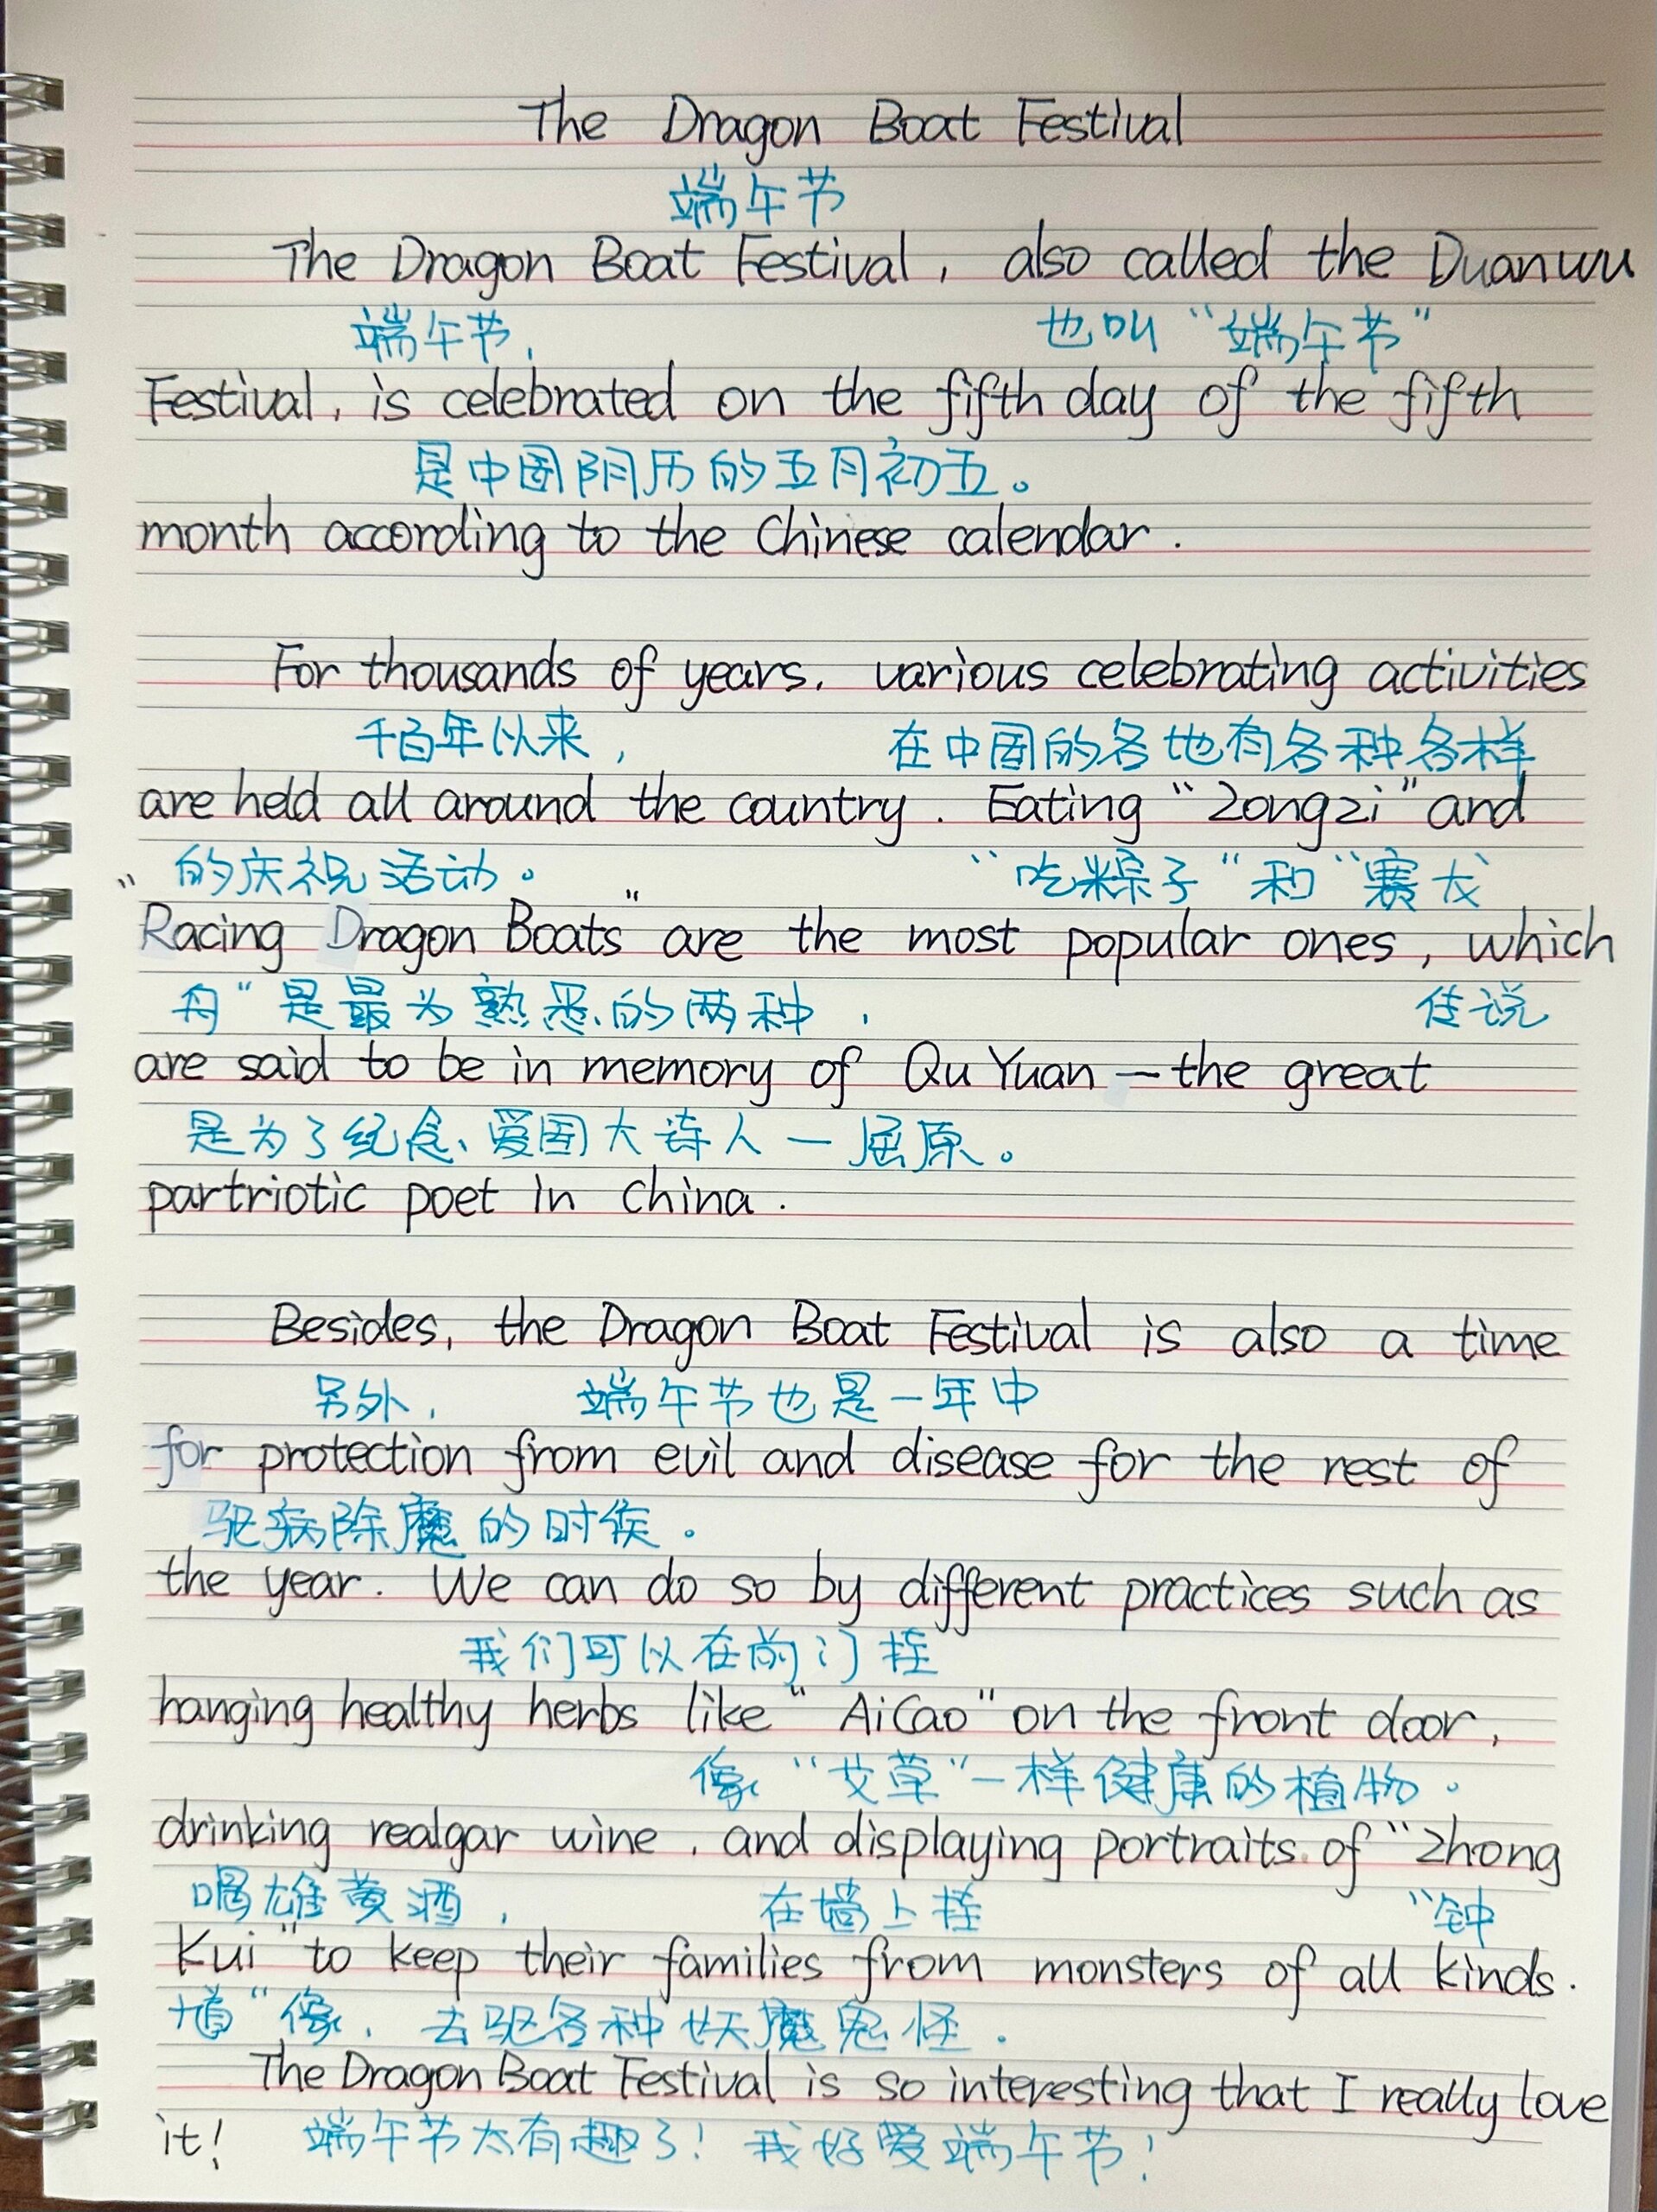 The Dragon Boat Festival
端午节
The Dragon Boat Festival, also called the Duanwu
端午节, 也叫“端午节”
Festival, is celebrated on the fifth day of the fifth
是中国阴历的五月初五。
month according to the Chinese calendar.
For thousands of years, various celebrating activities
千百年以来, 在中国的各地有各种各样
are held all around the country. Eating “Zongzi” and
的庆祝活动。 “吃粽子“和“赛龙
“Racing Dragon Boats” are the most popular ones, which
舟“是最为熟悉的两种, 传说
are said to be in memory of Qu Yuan — the great
是为了纪念爱国大诗人—屈原。
partriotic poet in China.
Besides, the Dragon Boat Festival is also a time
另外, 端午节也是一年中
for protection from evil and disease for the rest of
驱病除魔的时候.
the year. We can do so by different practices such as
我们可以在前门挂
hanging healthy herbs like “AiCao” on the front door,
像“艾草”一样健康的植物.
drinking realgar wine, and displaying portraits of “Zhong
喝雄黄酒, 在墙上挂 “钟
Kui” to keep their families from monsters of all kinds.
馗“像, 去驱各种妖魔鬼怪.
The Dragon Boat Festival is so interesting that I really love
it! 端午节太有趣了! 我好爱端午节!